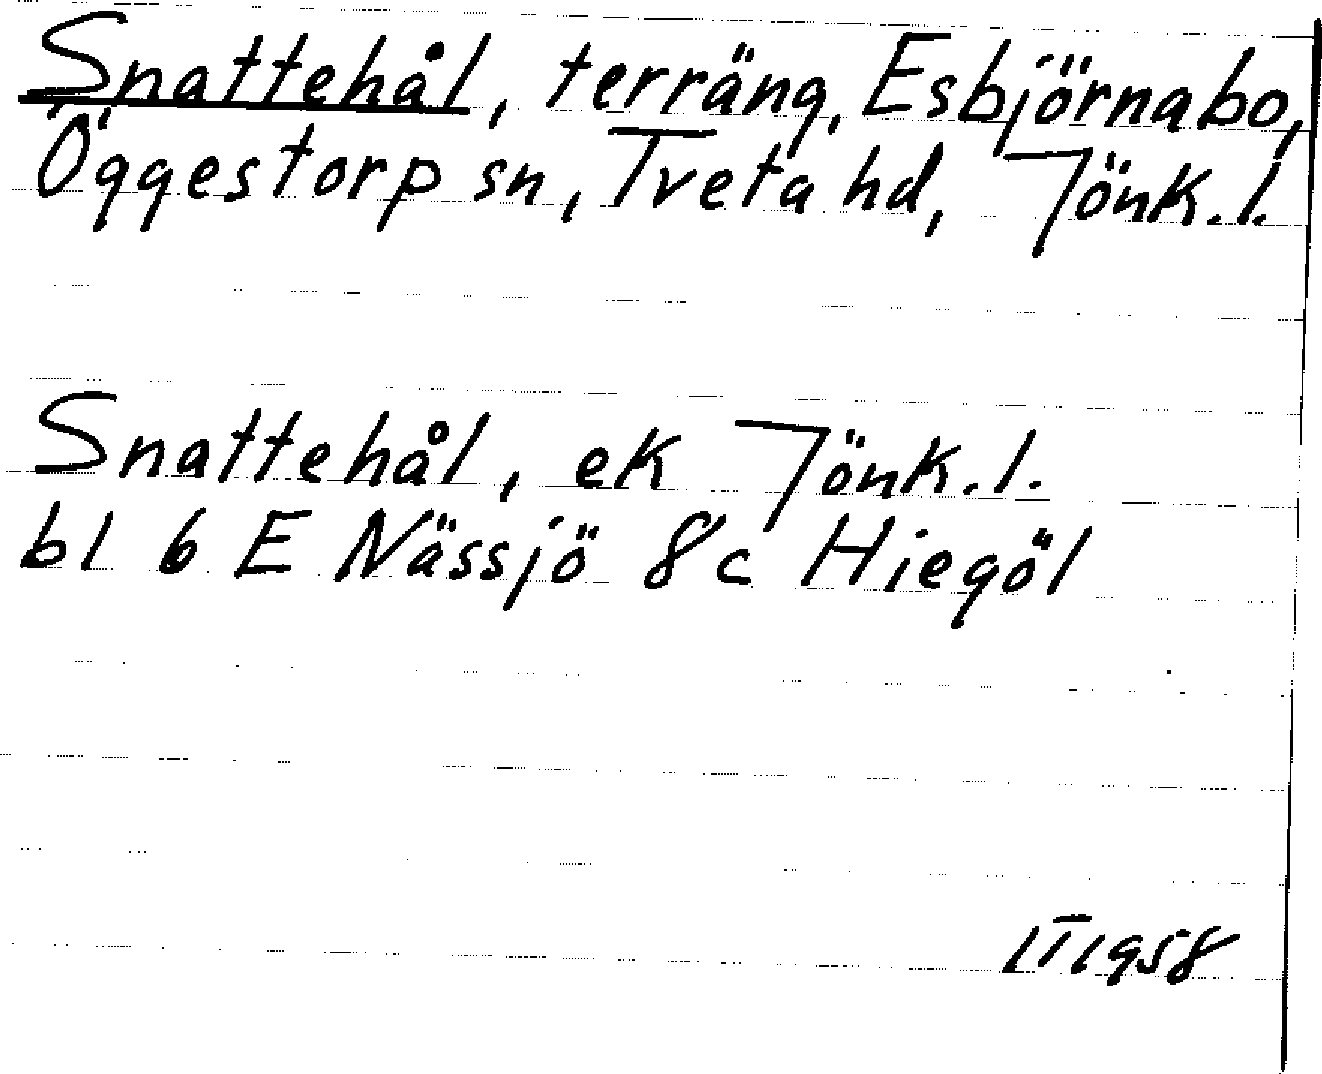 Snattehål, terräng, Esbjörnabo,
Öggestorp sn, Tveta hd, Jönk.l.
Snattehål, ek Jönk.l.
bl 6 E Nässjö 8c Hiegöl
ITI 1958